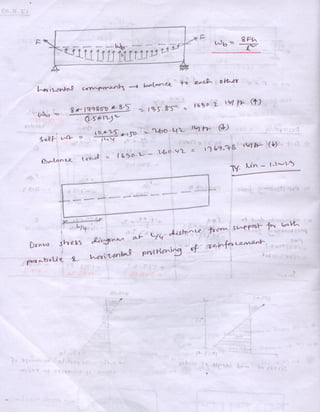 F F
Wb
Wb = 8Fh / L²
horizontal components → balance to each other
Wb = 8 * 179850 * 8.5 / (25*12)² = 135.85" = 1630.2 lb/ft (↑)
Self wt = 10*25 / 144 * 150 = 260.42 lb/ft (↓)
Balance load = 1630.2 - 260.42 = 1369.78 lb/ft (↑)
L/4
Draw stress diagram at L/4 distance from support for both
parabolic & horizontal positioning of reinforcement.